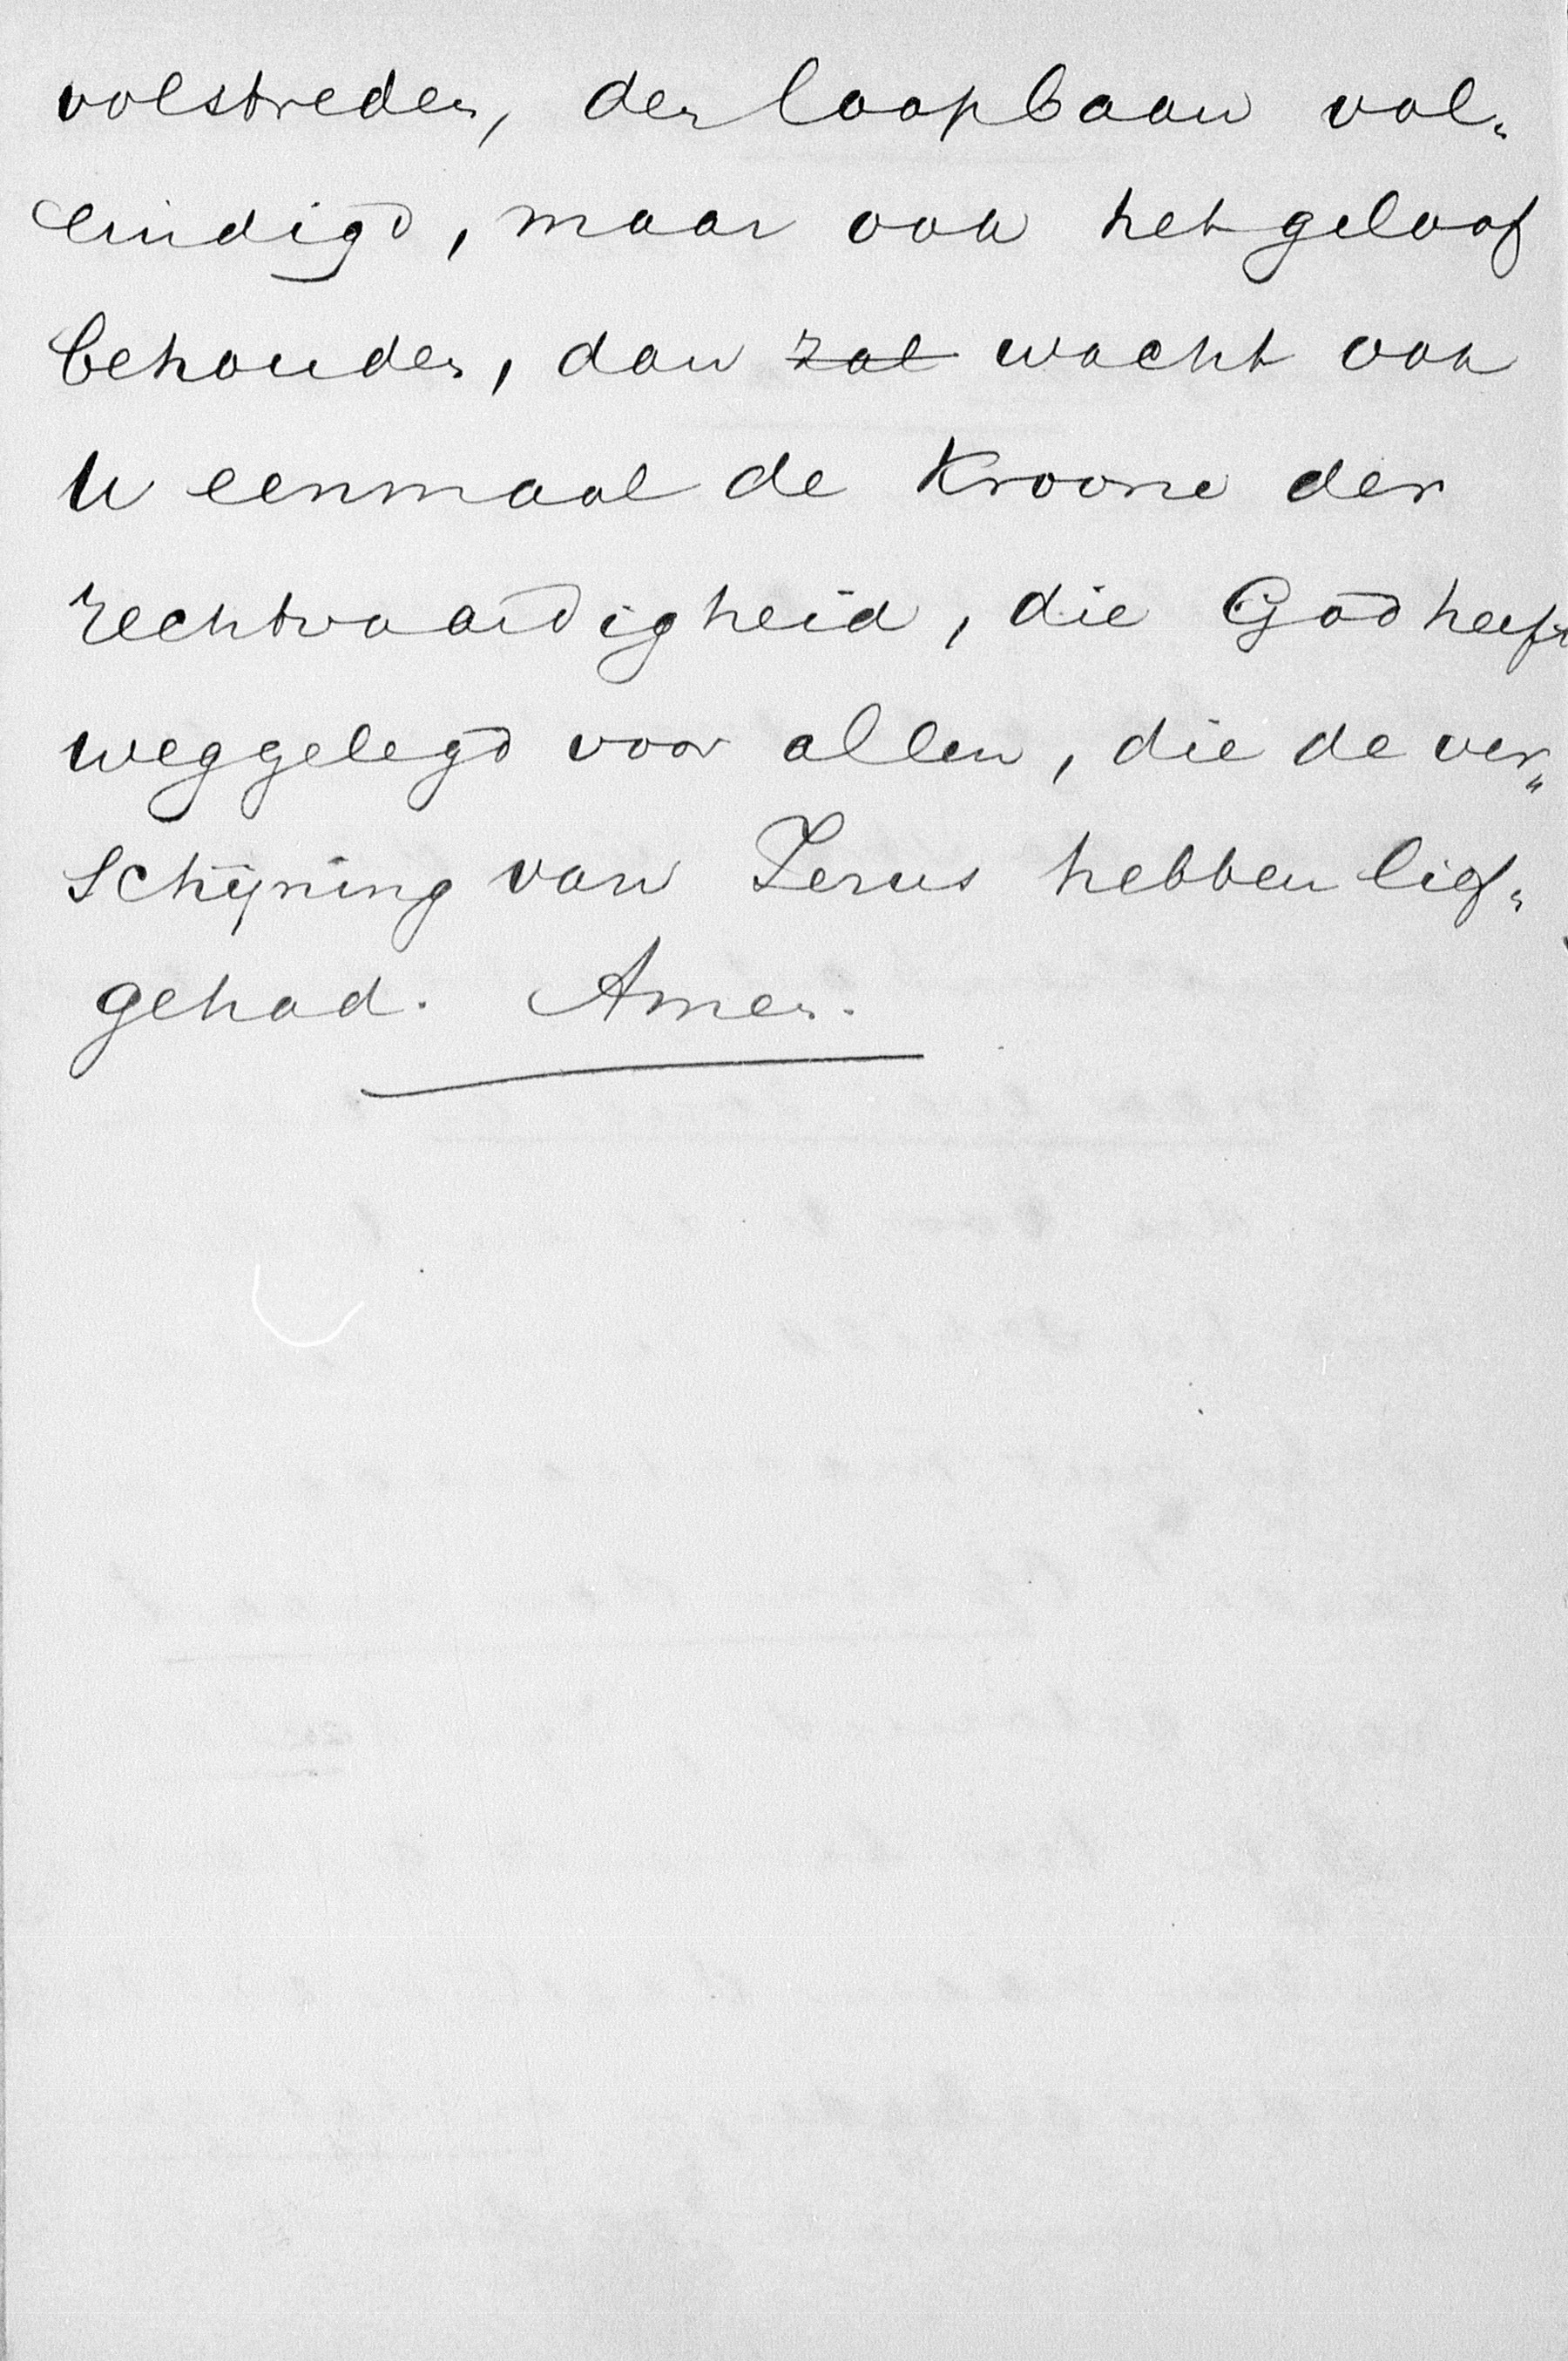 volstreden, den loopbaan vol-
eindigd, maar ook het geloof
behouden, dan ~~zal~~ wacht ook
U eenmaal de Kroone der
rechtvaardigheid, die God heeft
weggelegd voor allen, die de ver„
schijning van Jezus hebben lief-
gehad. Amen.